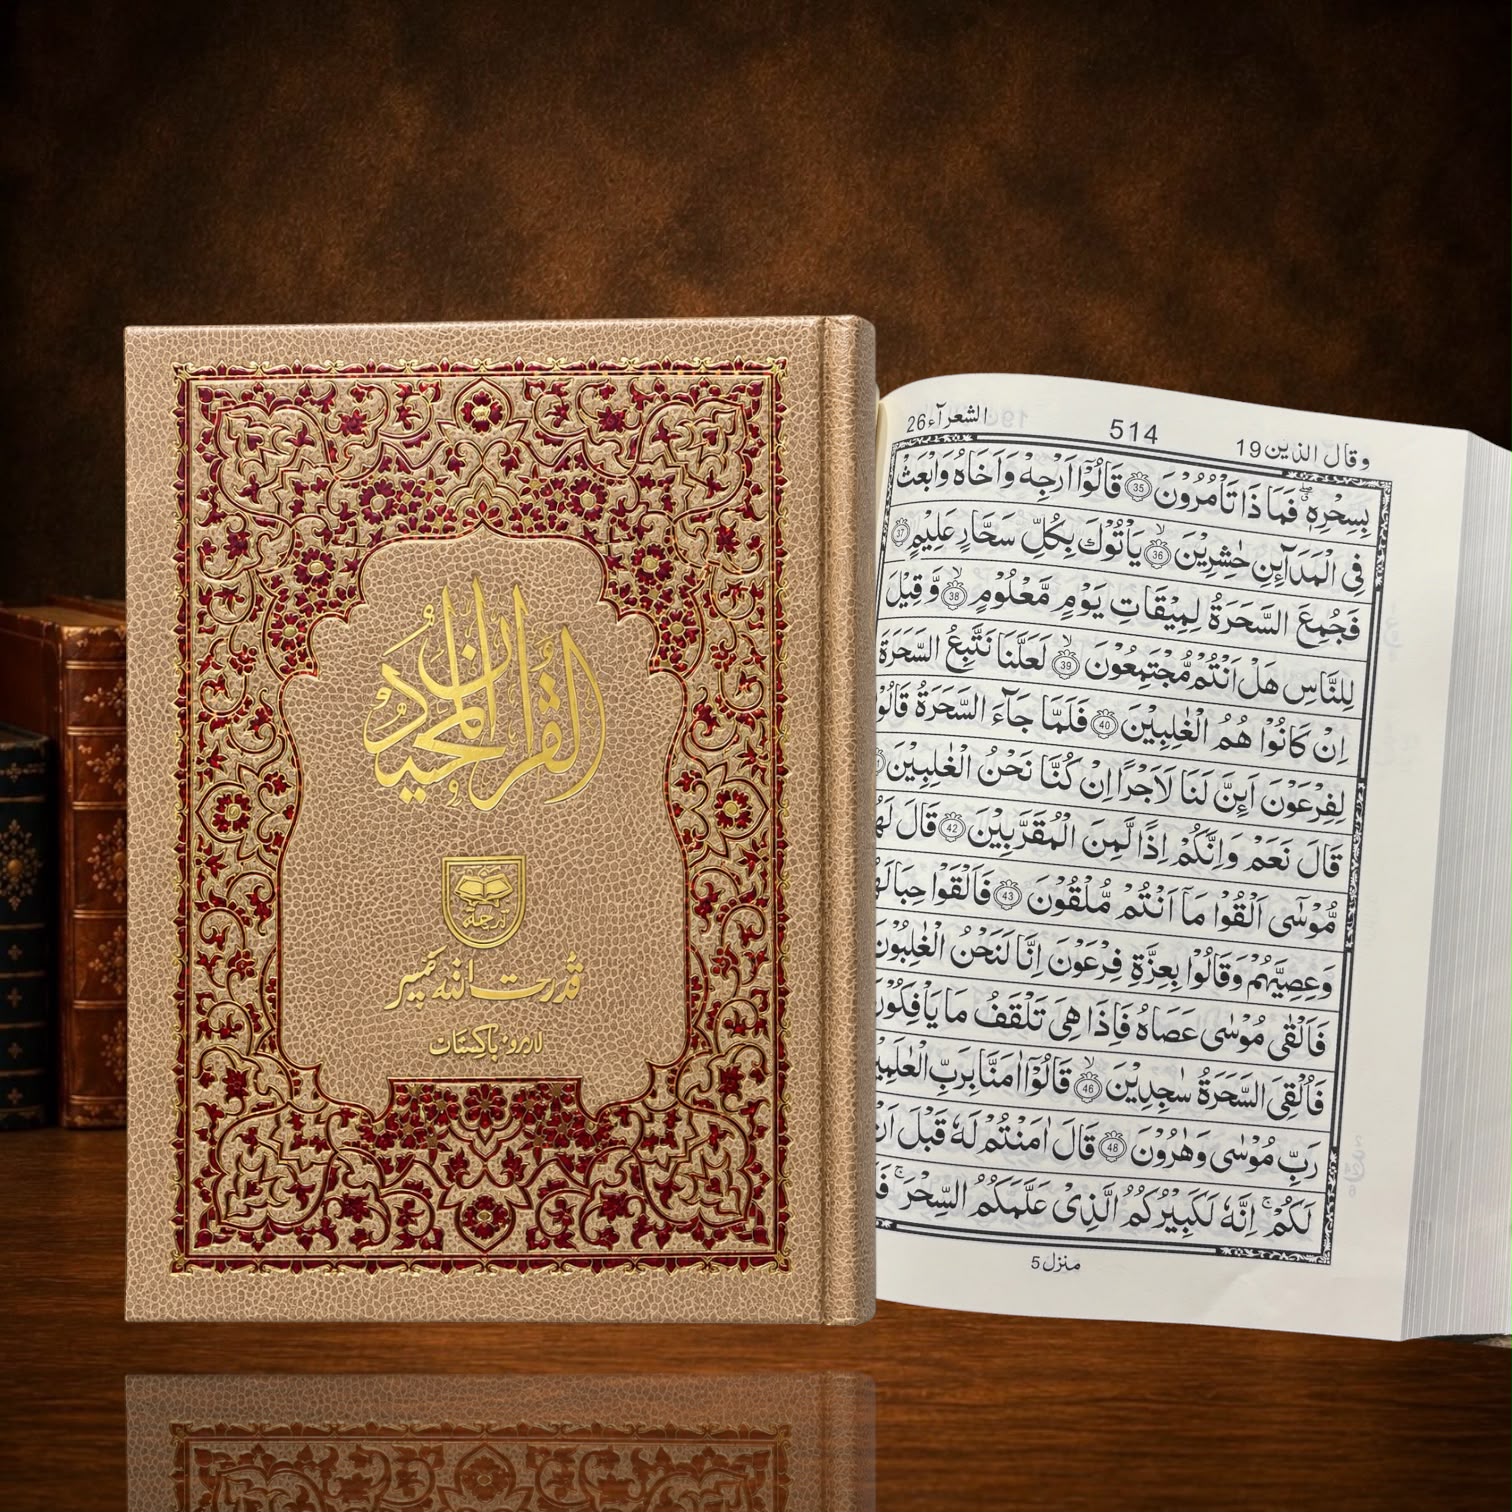 القرآن المجيد
قدرت اللہ کمپنی
لاہور، پاکستان
الشعرآء 26
514
وقال الذين 19
بِسِحْرِهٖ ۖۗ فَمَا ذَا تَاْمُرُوْنَ 35 قَالُوْۤا اَرْجِهْ وَاَخَاهُ وَابْعَثْ
فِى الْمَدَآئِنِ حٰشِرِيْنَ ۙ 36 يَاْتُوْكَ بِكُلِّ سَحَّارٍ عَلِيْمٍ 37
فَجُمِعَ السَّحَرَةُ لِمِيْقَاتِ يَوْمٍ مَّعْلُوْمٍ ۙ 38 وَّقِيْلَ
لِلنَّاسِ هَلْ اَنْتُمْ مُّجْتَمِعُوْنَ ۙ 39 لَعَلَّنَا نَتَّبِعُ السَّحَرَةَ
اِنْ كَانُوْا هُمُ الْغٰلِبِيْنَ 40 فَلَمَّا جَآءَ السَّحَرَةُ قَالُوْا
لِفِرْعَوْنَ اَئِنَّ لَنَا لَاَجْرًا اِنْ كُنَّا نَحْنُ الْغٰلِبِيْنَ
قَالَ نَعَمْ وَاِنَّكُمْ اِذًا لَّمِنَ الْمُقَرَّبِيْنَ 42 قَالَ لَهُ
مُّوْسٰۤى اَلْقُوْا مَاۤ اَنْتُمْ مُّلْقُوْنَ 43 فَاَلْقَوْا حِبَالَهُ
وَعِصِيَّهُمْ وَقَالُوْا بِعِزَّةِ فِرْعَوْنَ اِنَّا لَنَحْنُ الْغٰلِبُوْنَ
فَاَلْقٰى مُوْسٰى عَصَاهُ فَاِذَا هِىَ تَلْقَفُ مَا يَاْفِكُوْنَ
فَاُلْقِىَ السَّحَرَةُ سٰجِدِيْنَ ۙ 46 قَالُوْۤا اٰمَنَّا بِرَبِّ الْعٰلَمِيْ
رَبِّ مُوْسٰى وَهٰرُوْنَ 48 قَالَ اٰمَنْتُمْ لَهٗ قَبْلَ اَنْ
لَكُمْ ۚ اِنَّهٗ لَكَبِيْرُكُمُ الَّذِىْ عَلَّمَكُمُ السِّحْرَ ۚ فَ
منزل 5